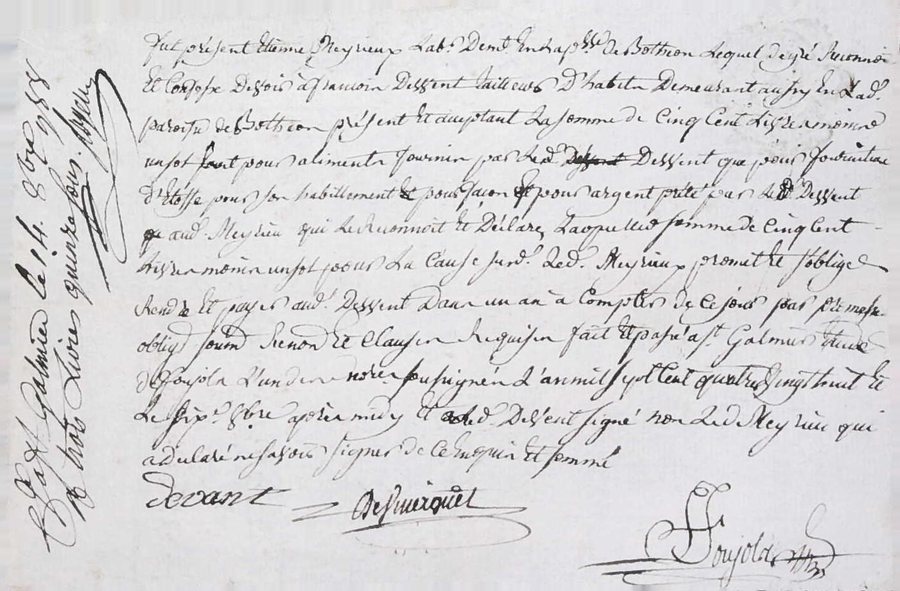 fut présent Etienne Meyrieux Lab.r dem.t En La p.sse de Bothéon Lequel de gré Reconnoi
Et Confesse Devoir a françois Dessent Tailleurs D'habits Demeurant aussy En Lad.
paroisse de Bothéon présent Et aceptant La somme de Cinq Cent Livres moins
un sol pour aliments fournir par Led. Dessent que pour fourniture
D'Etoffe pour son habillement Et pour façon Et pour argent prété par Led Dessent
aud. Meyrieu qui Le Reconnoit Et Declare, Laquelle somme de Cinq Cent
Livres moins un sol pour La Cause surd. Led. Meyrieux promet Et s'oblige
Rendre Et payer aud. Dessent Dans un an a Compter de Ce jour par promesse
oblig. soum Renon Et Clauses Requises fait Et passé a St Galmier Etude
de foujols L'un des no.res soussignés L'an mil sept Cent quatre vingt huit Et
Le six.e 8bre après midy Et Led. Dessent signé non Led Meyrieu qui
a Déclaré ne savoir signer de Ce Enquis Et sommé
Devant
foujols
St Galmier le 14 8bre 1788
trois Livres quinze sous